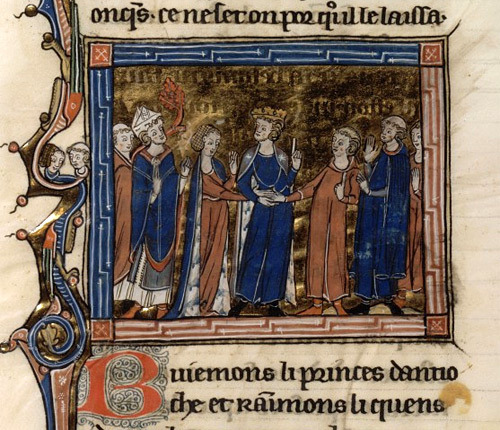 onq̃s· ce ne set on por q̃il le laissa·
Buiemons li princes dantio
che et raimons li quens